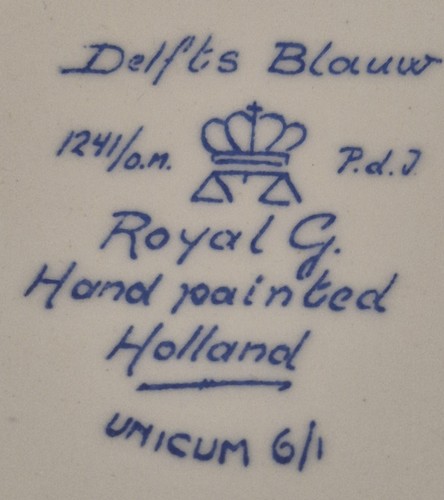 Delfts Blauw
1241/o.n. P.d.J.
Royal G.
Hand painted
Holland
UNICUM 6/1